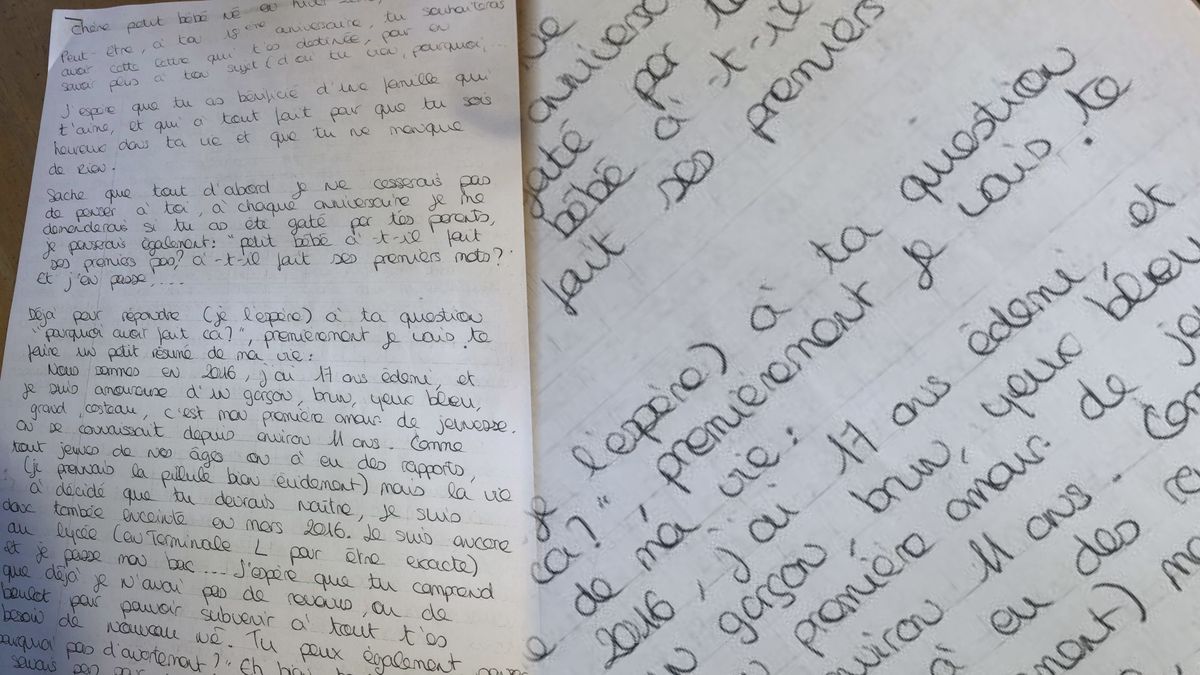 Chère petit bébé né en
Peut-être, à ton 18ème anniversaire, tu souhaiteras
avoir cette lettre qui t'es destinée, pour en
savoir plus à ton sujet (d'où tu vien, pourquoi,...
J'espère que tu as bénificié d'une famille qui
t'aime, et qui a tout fait pour que tu sois
heureux dans ta vie et que tu ne manque
de rien.
Sache que tout d'abord je ne cesserais pas
de penser à toi, à chaque anniversaire je me
demanderais si tu as été gaté par tes parents,
je penserais également: "petit bébé à-t-il fait
ses premiers pas? à-t-il fait ses premiers mots?"
Et j'en passe....
Déjà pour répondre (je l'espère) à ta question
"pourquoi avoir fait ca?", premièrement je vais te
faire un petit résumé de ma vie:
Nous sommes en 2016, j'ai 17 ans édemi, et
je suis amoureuse d'un garçon, brun, yeux bleu,
grand, costeau, c'est mon première amour de jeunesse.
On se connaissait depuis environ 11 ans. Comme
tout jeunes de nos âges on à eu des rapports,
(je prennais la pillule bien évidement) mais la vie
à décidé que tu devrais naître, je suis
donc tombée enceinte en mars 2016. Je suis encore
au lycée (en Terminale L pour être exacte)
et je passe mon bac.... j'espère que tu comprend
que déjà je n'avai pas de revenus, ou de
boulot pour pouvoir subvenir à tout t'es
besoin de nouveau né. Tu peux également
pourquoi pas d'avortement?" Eh bien
savais pas
anniversa
gaté par te
bébé à-t-il
fait ses premiers
je l'espère) à ta question
ca?", premièrement je vais te
de ma vie:
2016, j'ai 17 ans édemi, et
un garçon, brun, yeux bleu
première amour de je
environ 11 ans. Com
à eu des ra
ment) ma